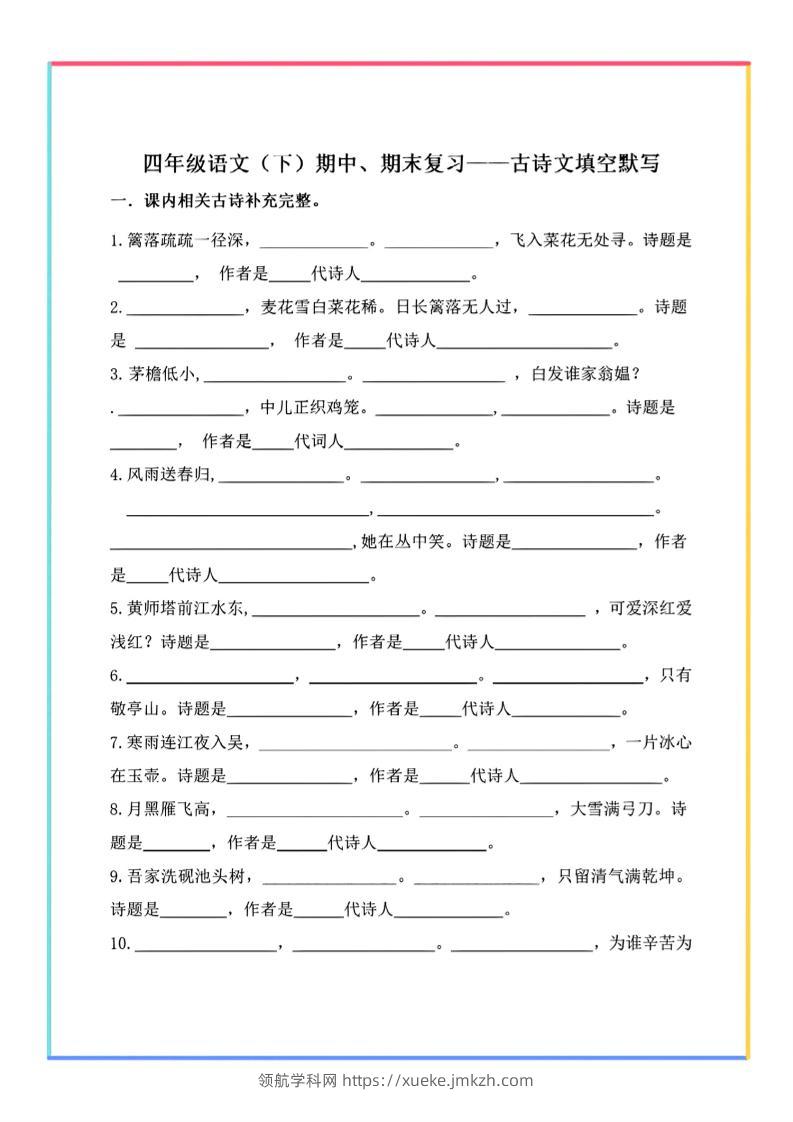 四年级语文（下）期中、期末复习——古诗文填空默写
一．课内相关古诗补充完整。
1.篱落疏疏一径深，_____________。_____________，飞入菜花无处寻。诗题是
_________， 作者是_____代诗人_____________。
2.______________，麦花雪白菜花稀。日长篱落无人过，_____________。诗题
是 ________________， 作者是_____代诗人_____________________。
3. 茅檐低小,_________________。_________________ ，白发谁家翁媪？
._______________，中儿正织鸡笼。______________,_____________。诗题是
________， 作者是_____代词人_____________。
4.风雨送春归,_______________。________________,__________________。
_____________________________,_________________________________。
_____________________________,她在丛中笑。诗题是_______________，作者
是_____代诗人__________________。
5.黄师塔前江水东,____________________。__________________ ，可爱深红爱
浅红？诗题是_______________，作者是_____代诗人_______________。
6.____________________，____________________。__________________，只有
敬亭山。诗题是_______________，作者是_____代诗人_____________。
7.寒雨连江夜入吴，_______________________。_________________，一片冰心
在玉壶。诗题是_______________，作者是______代诗人_________________。
8.月黑雁飞高，_____________________。________________，大雪满弓刀。诗
题是________，作者是______代诗人_____________。
9.吾家洗砚池头树，________________。_______________，只留清气满乾坤。
诗题是________，作者是______代诗人_____________。
10._________________，_________________。_________________，为谁辛苦为
领航学科网 https://xueke.jmkzh.com